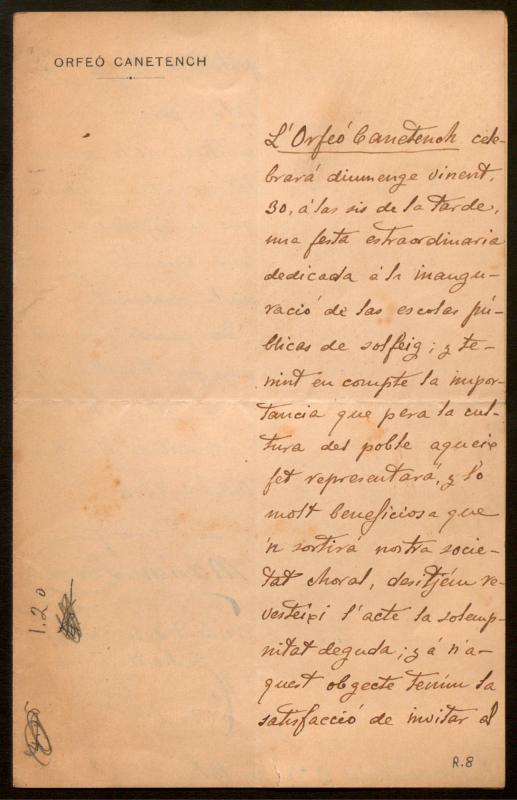 ORFEÓ CANETENCH
L'Orfeó Canetench cele-
brará diumenge vinent,
30, á las sis de la tarde,
una festa estraordinaria
dedicada á la inaugu-
ració de las escolas pú-
blicas de solfeig; y te-
nint en compte la impor-
tancia que pera la cul-
tura del poble aqueix
fet representará, y lo
molt beneficiosa que
'n sortirá nostra socie-
tat choral, desitjém re-
vesteixi l'acte la solemp-
nitat deguda; y á n'a-
quest obgecte tením la
satisfacció de invitar al
1.20
R.8